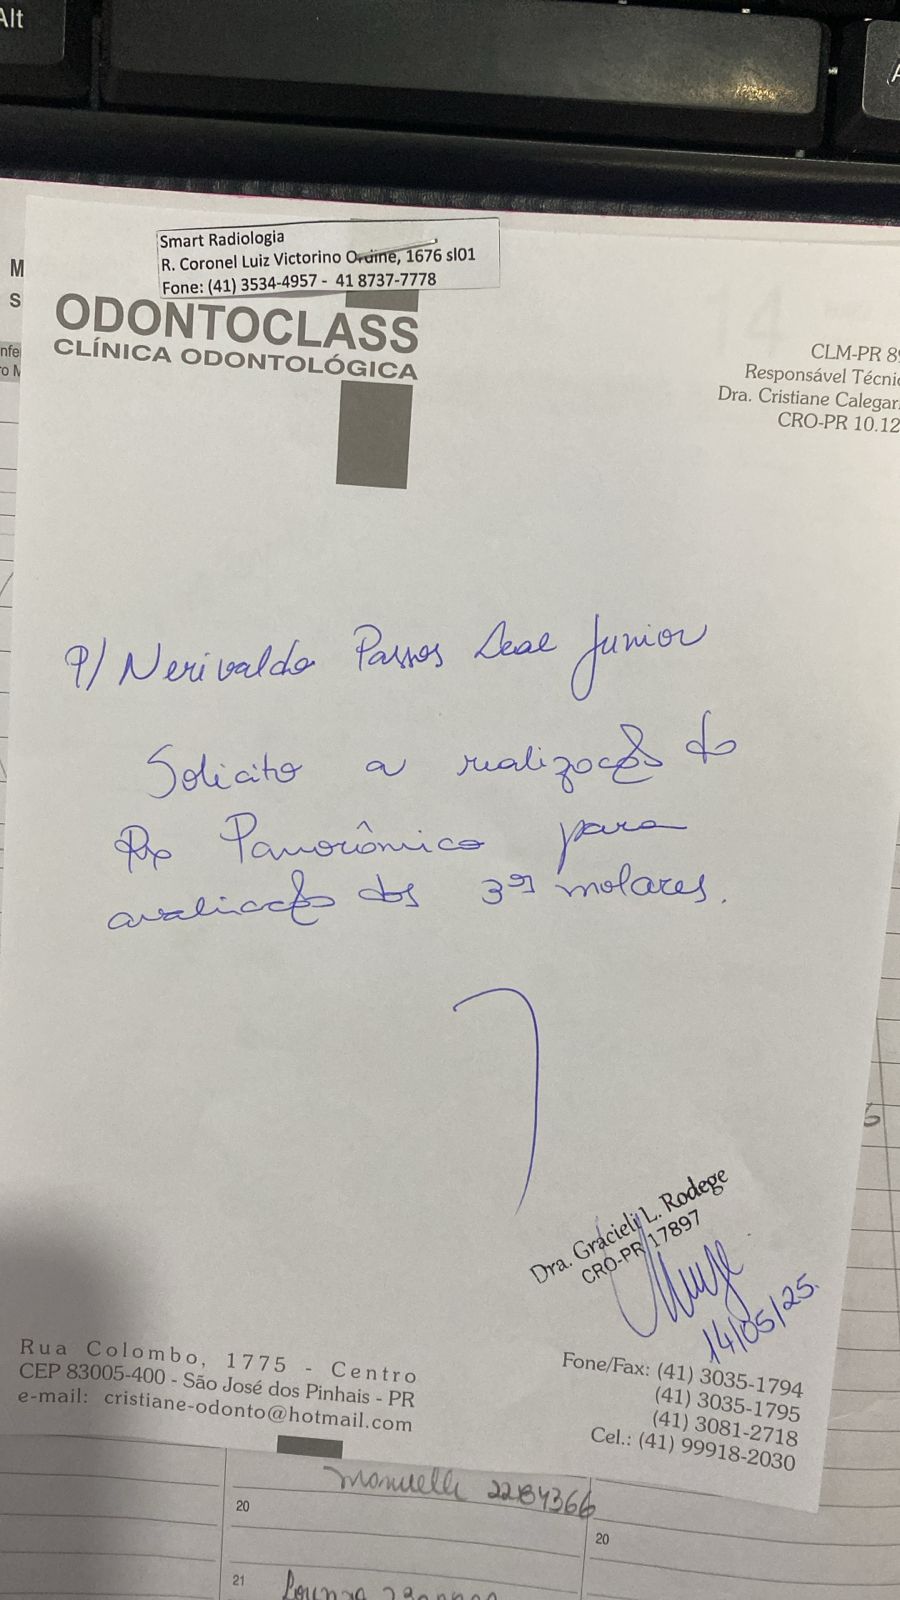 Alt
A
M
S
nfe
o M
Smart Radiologia
R. Coronel Luiz Victorino Ordine, 1676 sl01
Fone: (41) 3534-4957 - 41 8737-7778
ODONTOCLASS
CLÍNICA ODONTOLÓGICA
CLM-PR 89
Responsável Técnic
Dra. Cristiane Calegar
CRO-PR 10.12
P/ Nerivaldo Passos Leal Junior
Solicito a realização do
Rx Panorâmico para
avaliação dos 3ºs molares.
Dra. Gracieli L. Rodege
CRO-PR 17897
14/05/25.
Rua Colombo, 1775 - Centro
CEP 83005-400 - São José dos Pinhais - PR
e-mail: cristiane-odonto@hotmail.com
Fone/Fax: (41) 3035-1794
(41) 3035-1795
(41) 3081-2718
Cel.: (41) 99918-2030
Manuelle 22184366
20
20
21